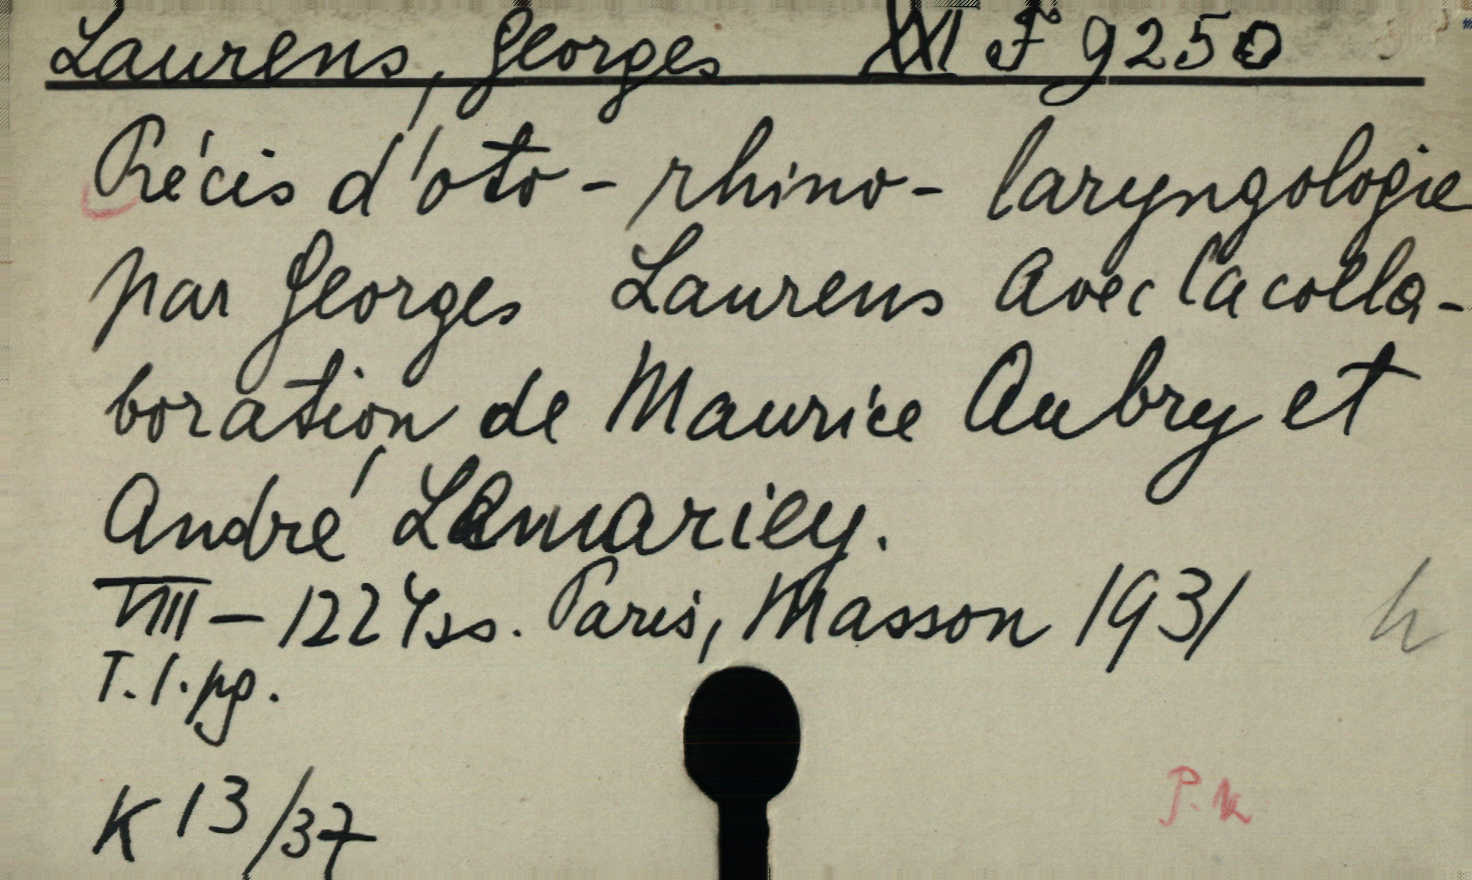 Laurens, Georges XXI F 9250
Précis d'oto-rhino-laryngologie
par Georges Laurens avec la colla-
boration de Maurice Aubry et
André Lemariey.
VIII - 1224 ss. Paris, Masson 1931
T. 1. pg.
K 13/37
P. k
h